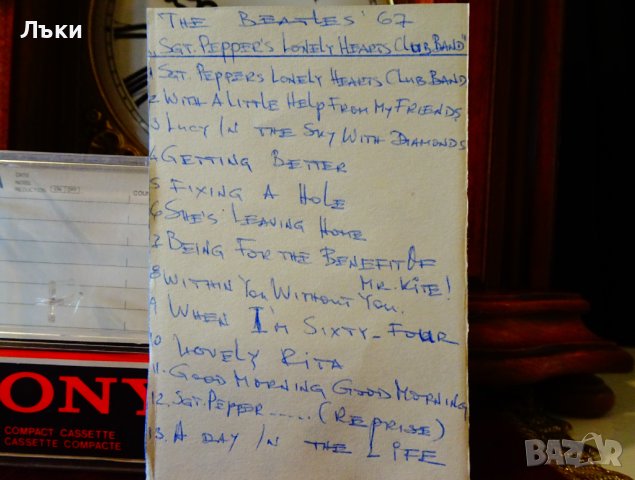 Лъки
THE BEATLES '67
"SGT. PEPPER'S LONELY HEARTS CLUB BAND"
1 SGT. PEPPERS LONELY HEARTS CLUB BAND
2. WITH A LITTLE HELP FROM MY FRIENDS
3 LUCY IN THE SKY WITH DIAMONDS
4 GETTING BETTER
5 FIXING A HOLE
6 SHE'S LEAVING HOME
7 BEING FOR THE BENEFIT OF
MR. KITE!
8 WITHIN YOU WITHOUT YOU.
9 WHEN I'M SIXTY-FOUR
10 LOVELY RITA
11. GOOD MORNING GOOD MORNING
12. SGT. PEPPER ..... (REPRISE)
13. A DAY IN THE LIFE
DATE
NOISE
REDUCTION
ONY
COMPACT CASSETTE
CASSETTE COMPACTE
BAZAR